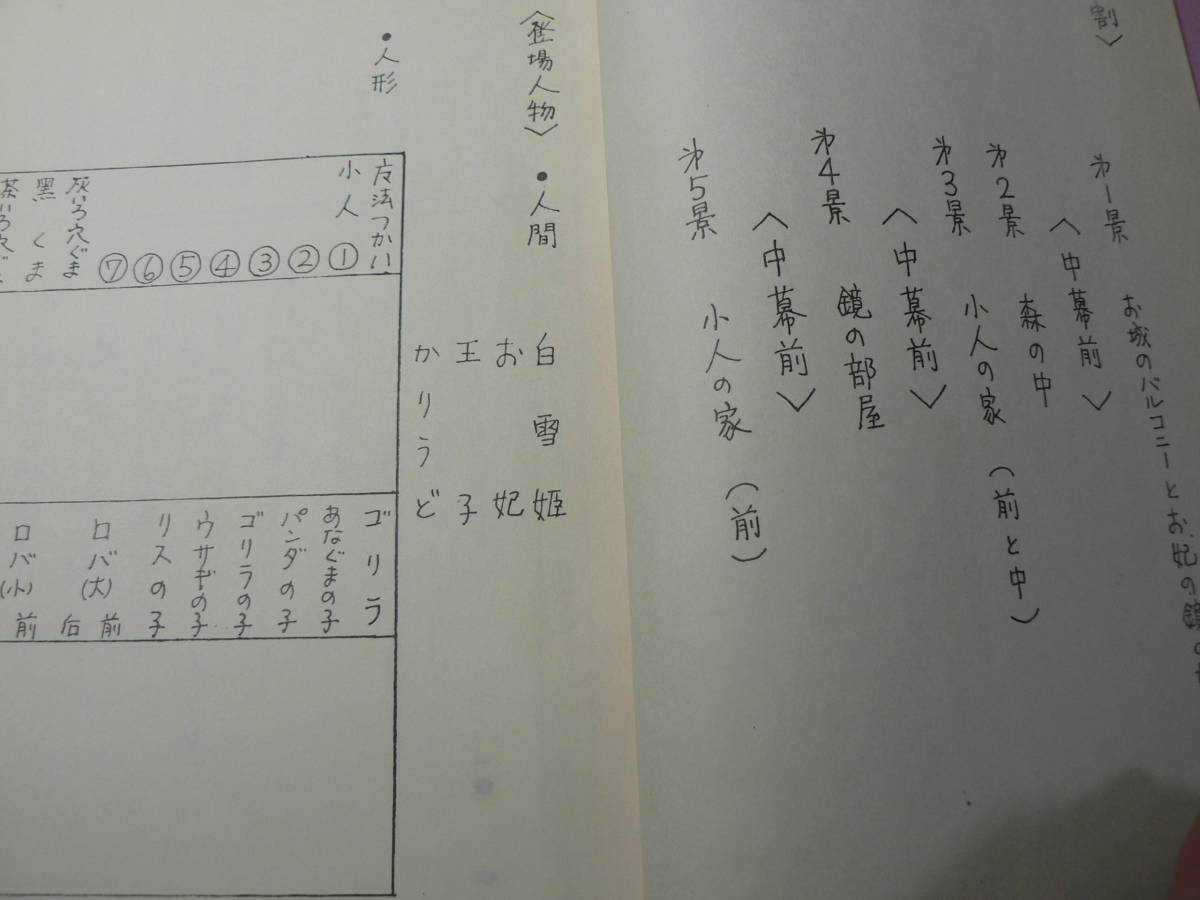 割〉
第1景 お城のバルコニーとお妃の鏡の
〈中幕前〉
第2景 森の中
第3景 小人の家(前と中)
〈中幕前〉
第4景 鏡の部屋
〈中幕前〉
第5景 小人の家(前)
〈登場人物〉 •人間 白雪姫
お妃
王子
かりうど
•人形
魔法つかい
小人 ①
②
③
④
⑤
⑥
⑦
灰いろ穴ぐま
黒くま
茶いろ穴ぐ
ゴリラ
あなぐまの子
パンダの子
ゴリラの子
ウサギの子
リスの子
ロバ(大) 前
后
ロバ(小) 前